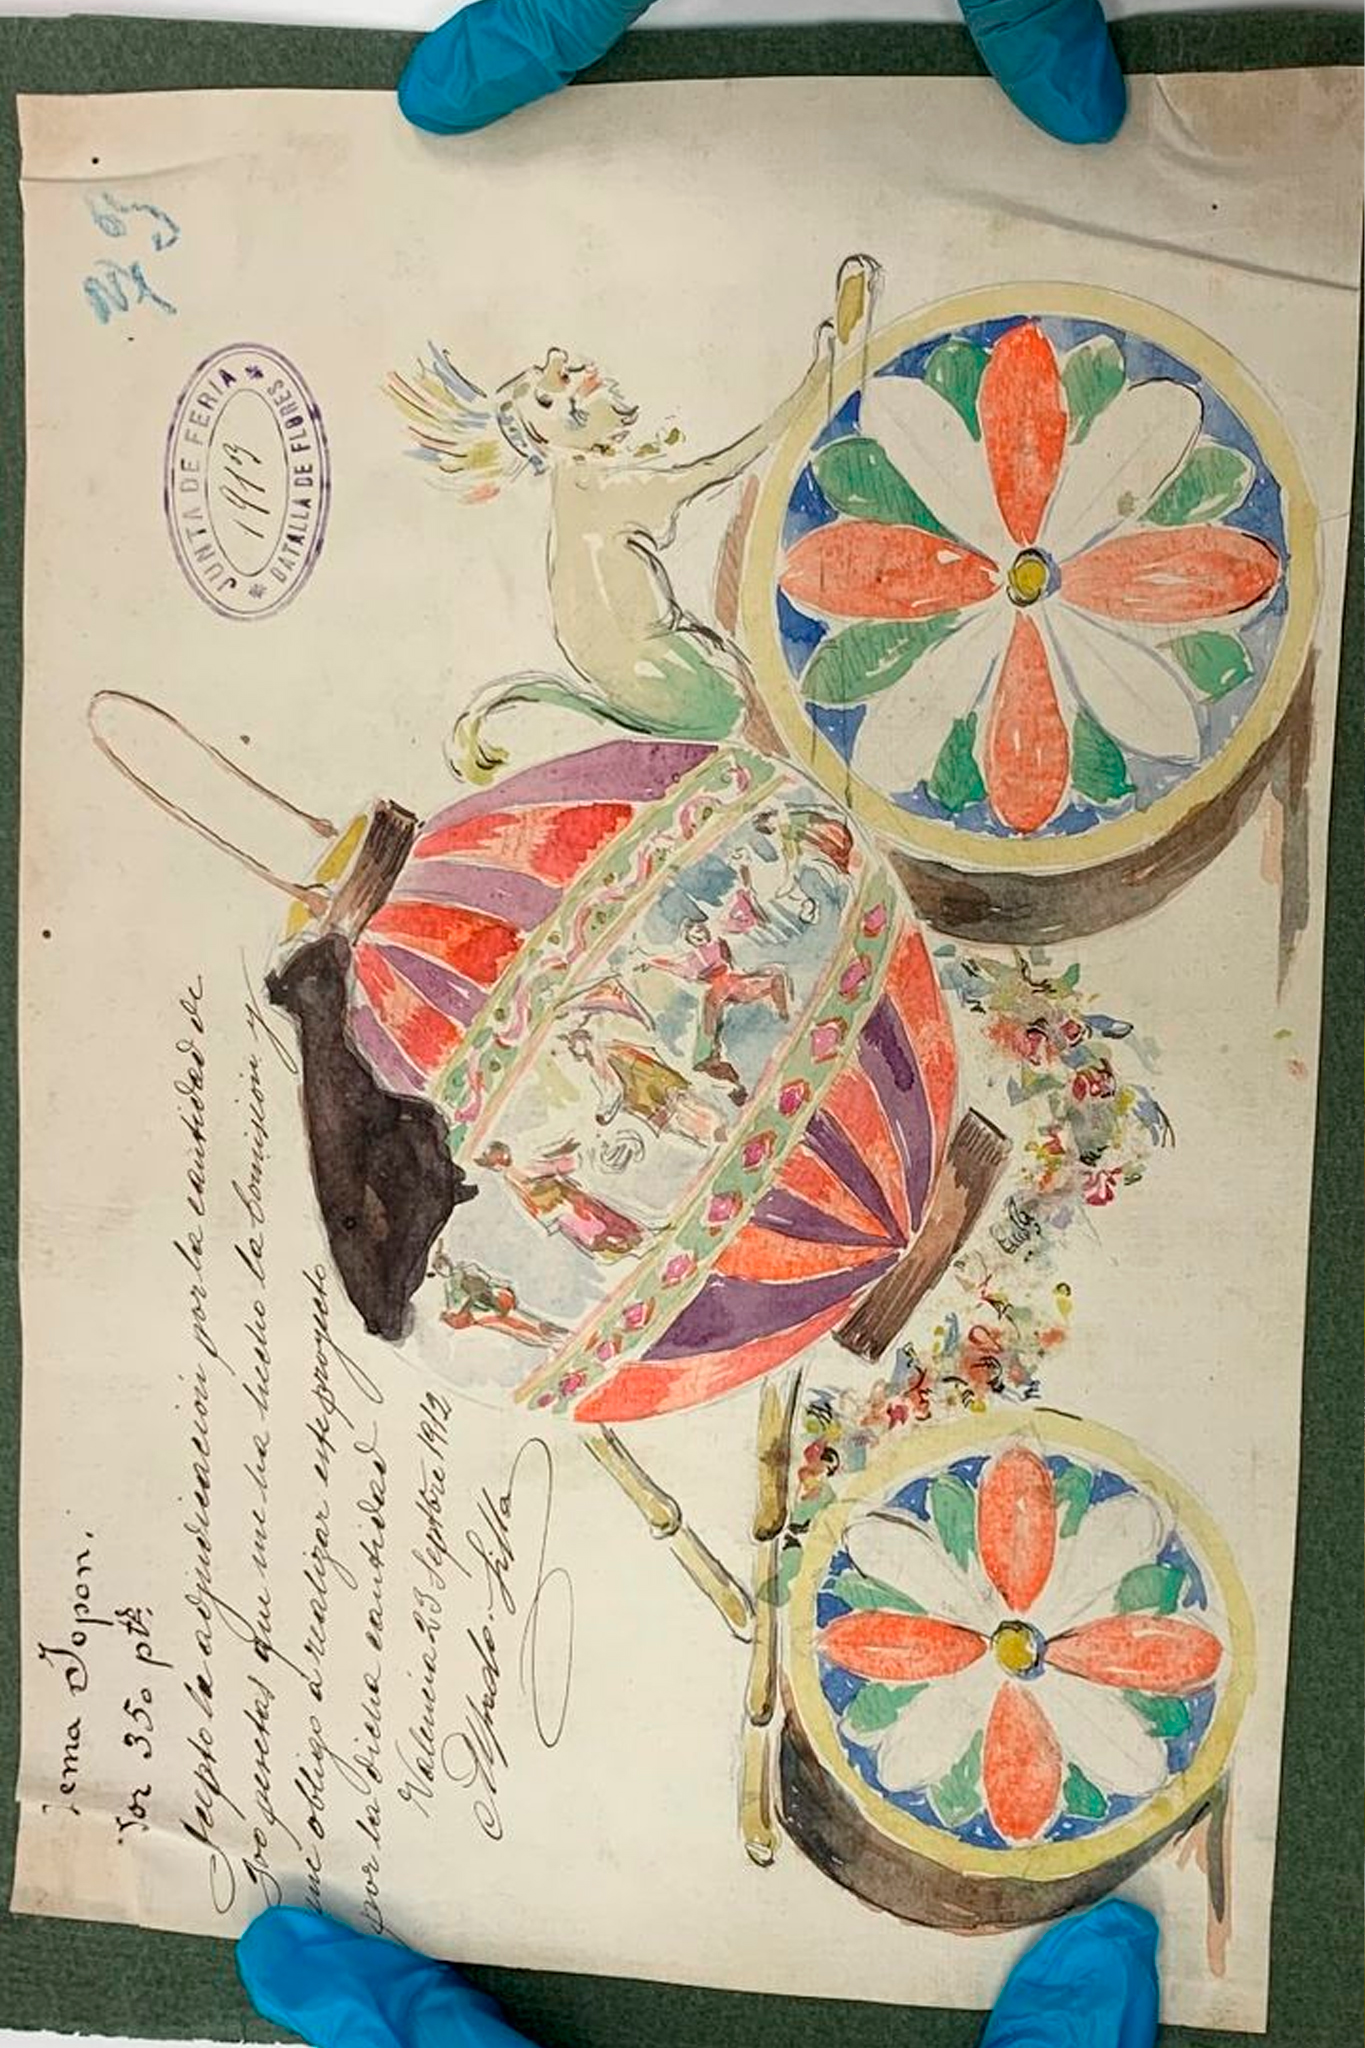 Lema Japon.
Por 350 pts.
Acepto la adjudicacion por la cantidad de
300 pesetas que me ha hecho la Comision y
me obligo á realizar este proyecto
por la dicha cantidad
Valencia 23 Septbre 1912
Alfredo Silla
JUNTA DE FERIA
1913
BATALLA DE FLORES